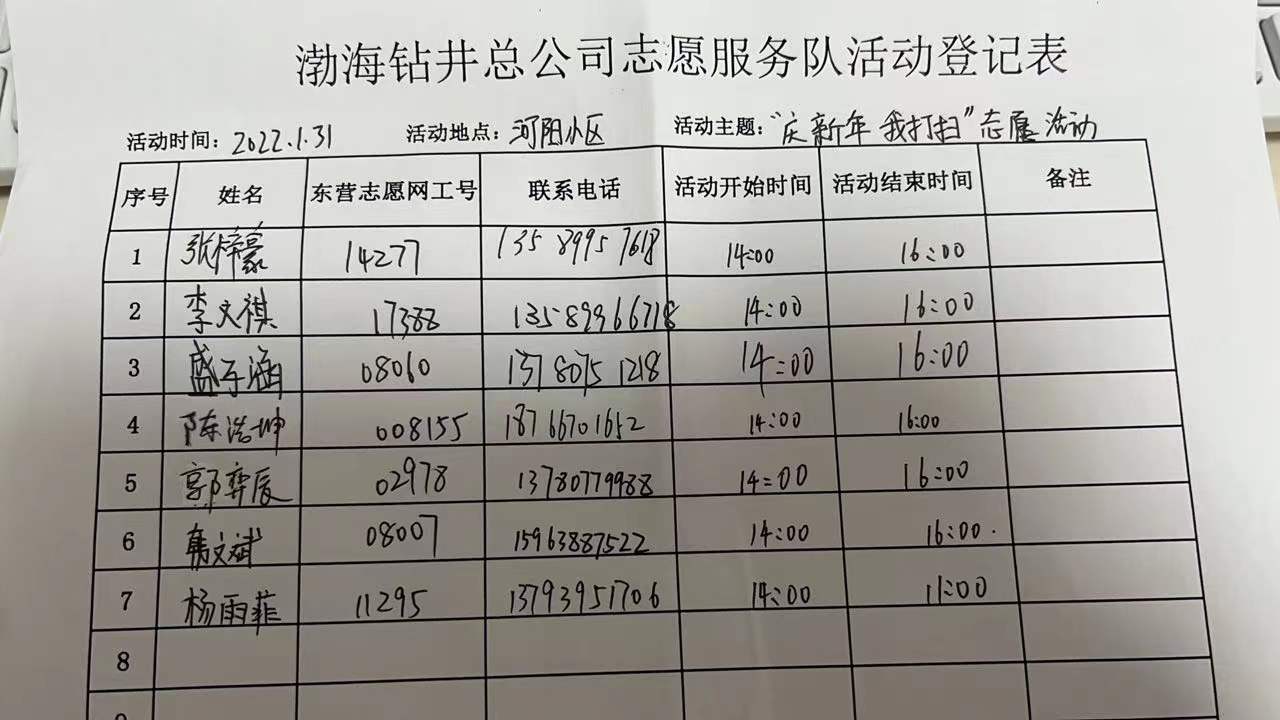 渤海钻井总公司志愿服务队活动登记表
活动时间：2022.1.31 活动地点：河阳小区 活动主题：“庆新年 我打扫”志愿活动
序号 姓名 东营志愿网工号 联系电话 活动开始时间 活动结束时间 备注
1 张梓豪 14277 13589957618 14:00 16:00
2 李文祺 17388 13589966718 14:00 16:00
3 盛子涵 08060 13780751218 14:00 16:00
4 陈浩坤 008155 18766701652 14:00 16:00
5 郭弈辰 02978 13780779988 14=00 16:00
6 文斌 08007 15963887522 14:00 16:00.
7 杨雨菲 11295 13793951706 14:00 11:00
8